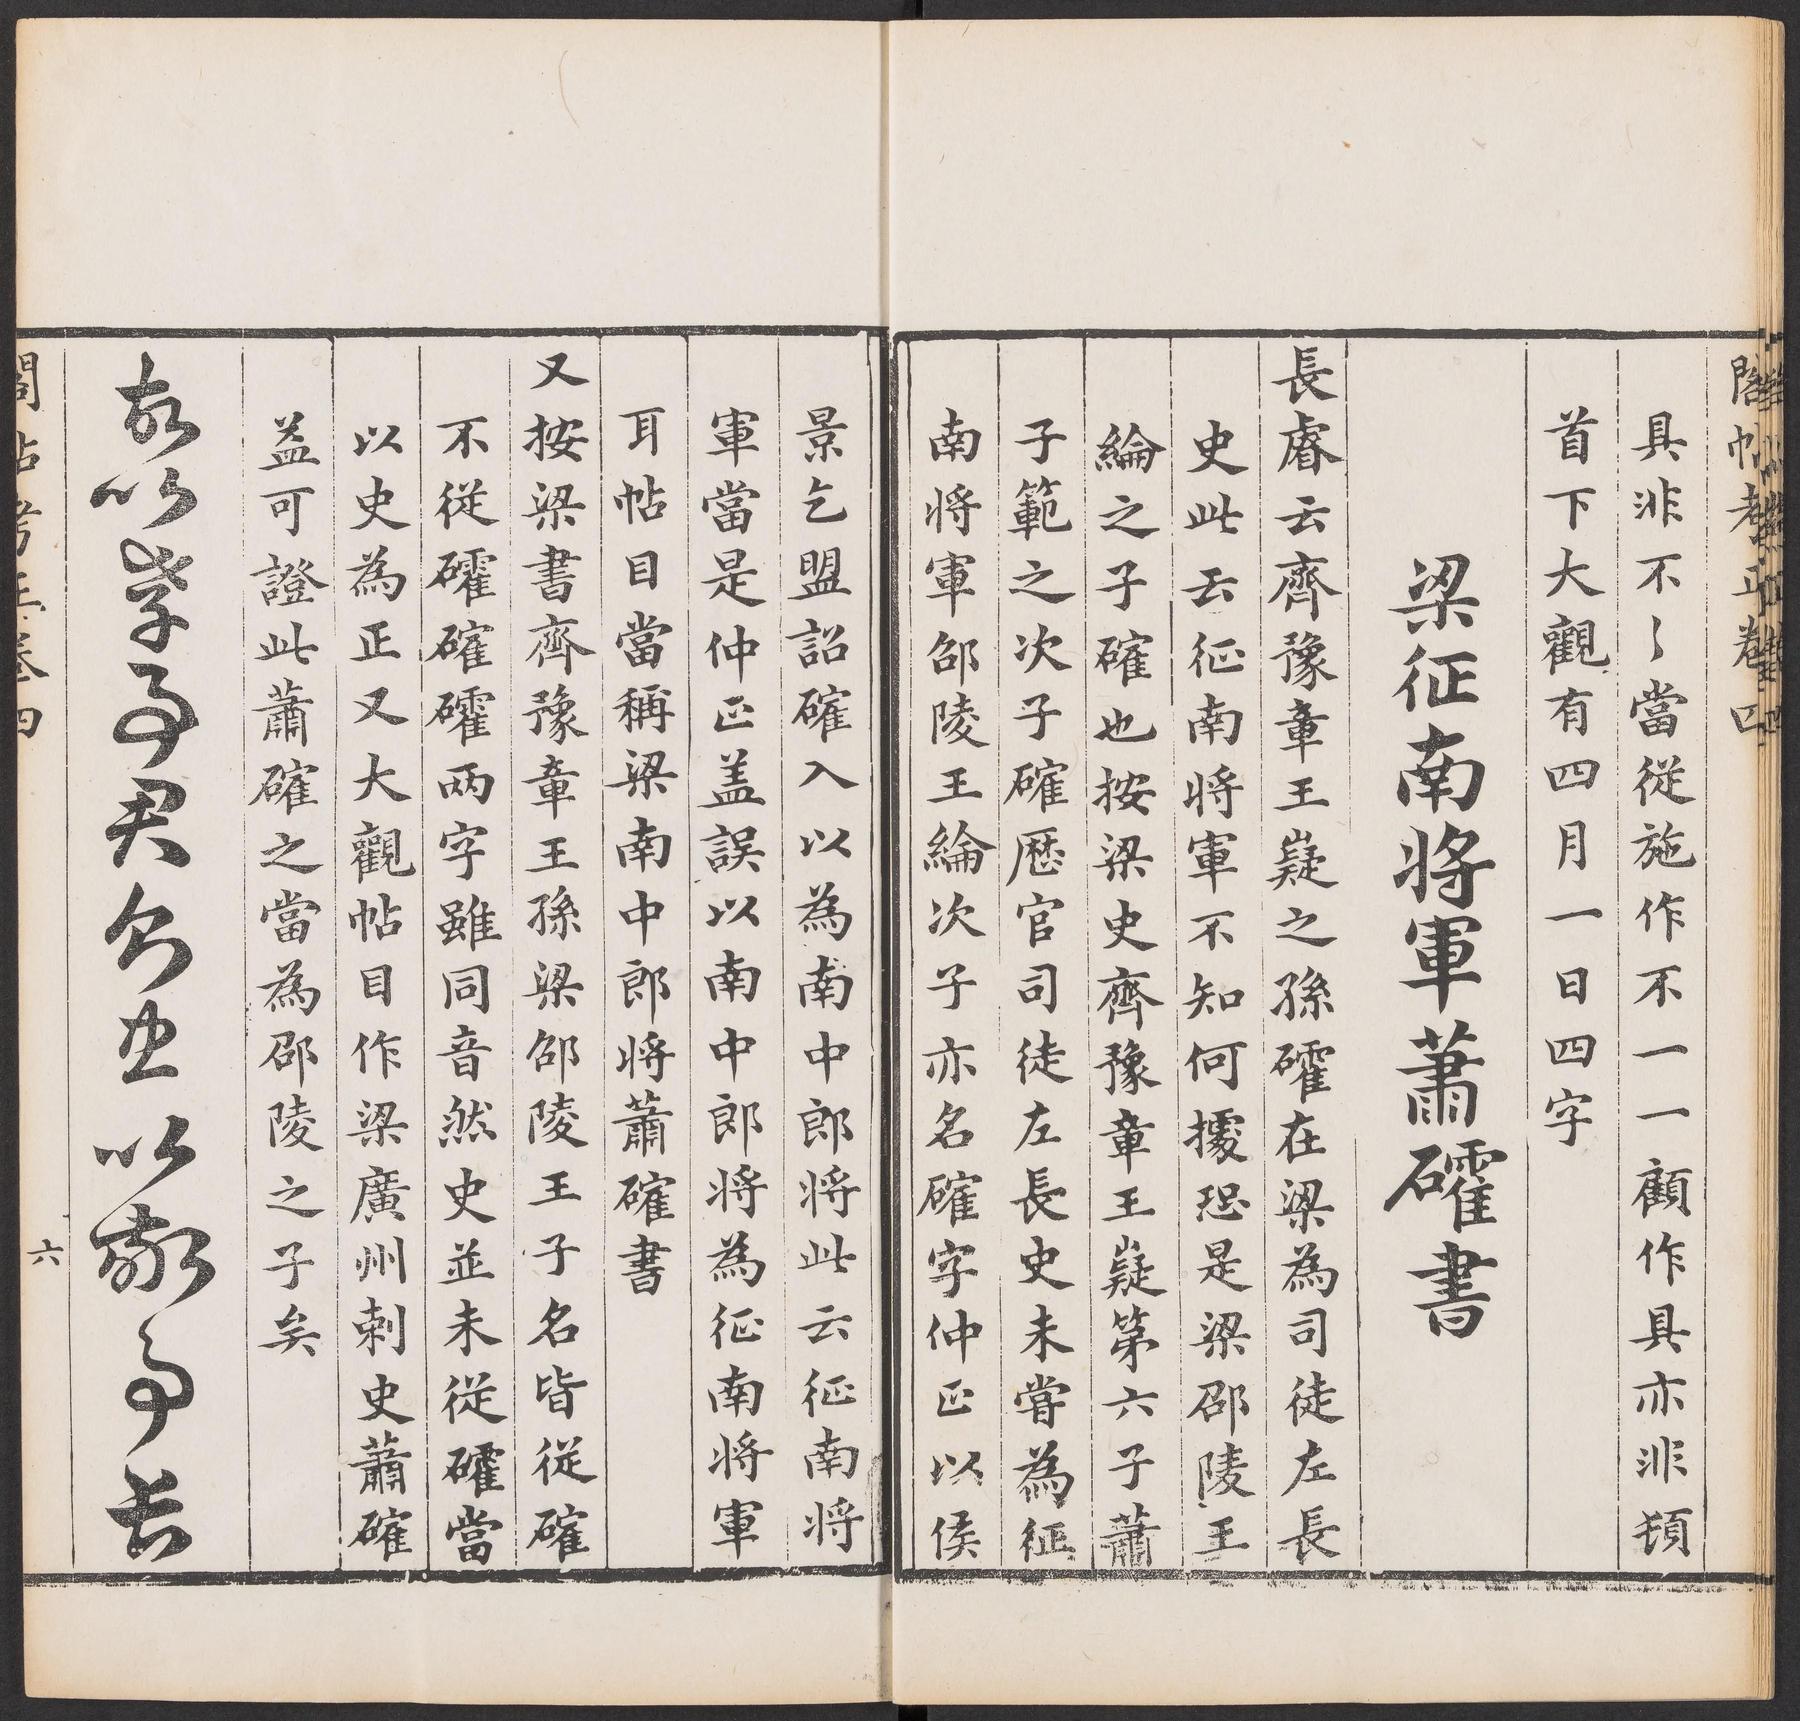 閣帖考正卷四
具非不〻當從施作不一一顧作具亦非頓
首下大觀有四月一日四字
梁征南將軍蕭㩁書
長睿云齊豫章王嶷之孫㩁在梁為司徒左長
史此云征南將軍不知何據恐是梁邵陵王
綸之子確也按梁史齊豫章王嶷第六子蕭
子範之次子確歷官司徒左長史未嘗為征
南將軍邵陵王綸次子亦名確字仲正以侯
景乞盟詔確入以為南中郎將此云征南將
軍當是仲正盖誤以南中郎將為征南將軍
耳帖目當稱梁南中郎將蕭確書
又按梁書齊豫章王孫梁邵陵王子名皆從確
不從㩁確㩁兩字雖同音然史並未從㩁當
以史為正又大觀帖目作梁廣州刺史蕭確
益可證此蕭確之當為邵陵之子矣
閣帖考正卷四
六